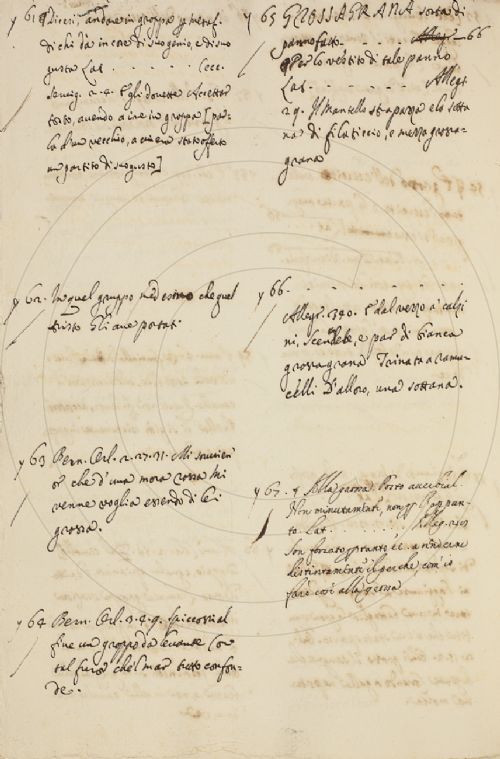 y 61 Dicesi, andare in groppa p metaf.
di chi dà in cose di suo genio, e di suo
gusto Lat. . . . . . (Cecc.
Servig. 2. 4. Egli dovette
torto, avendo a ire in groppa [par-
la d'un vecchio, a cui era stato offerto
un partito di suo gusto]
y 62. In quel gruppo medesimo che quel
tristo gli ave portati
y 63 Bern. Orl. 2. 27. 31. Mi sovvien
che d'una mora rossa mi
venne voglia essendo di lei
grossa.
y 64 Bern. Orl. 3. 4. 9. Spiccossi al
fine un groppo da levante Con
tal furor che 'l mar tutto confon-
de.
y 65 GROSSAGRANA sorta di
panno fatto. 66
Per lo vestito di tale panno
Lat. . . . . . . Allegr.
29. Il Mantello strapazza e la sotta
na di filaticcio, e mezza grossa-
grana
y 66 . . . . . .
Allegr. 340. E dal vezzo a' calzi
ni, scendete, e par di bianca
grossagrana Trinata a ramu-
celli D'alloro, una sottana.
y 67. Alla grossa. Posto avverbial.
Non minutamente, non p l'appun-
to. Lat. . . . . . Alleg. 210
Son forzato pertanto ec. a
distintamente il perchè, com'io
farò così alla grossa